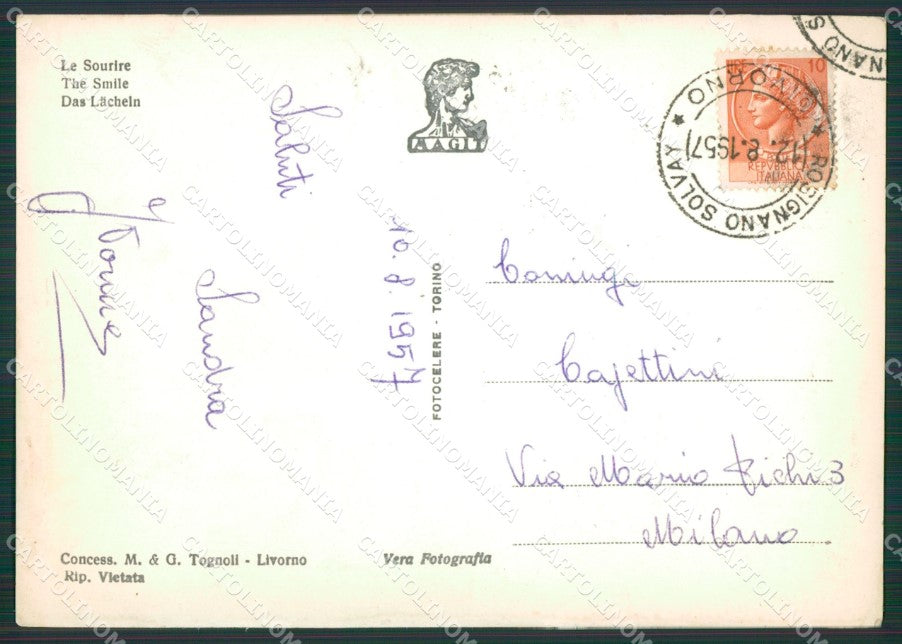 Le Sourire
The Smile
Das Lächeln
AAGIT
Saluti
Sandra
e
10.8.1957
FOTOCELERE - TORINO
LIRE 10
REPVBBLICA
ITALIANA
ROSIGNANO SOLVAY * LIVORNO *
12.8.1957
Coniugi
Cajettini
Via Mario Pichi 3
Milano
Concess. M. & G. Tognoli - Livorno
Rip. Vietata
Vera Fotografia
CARTOLINOMANIA